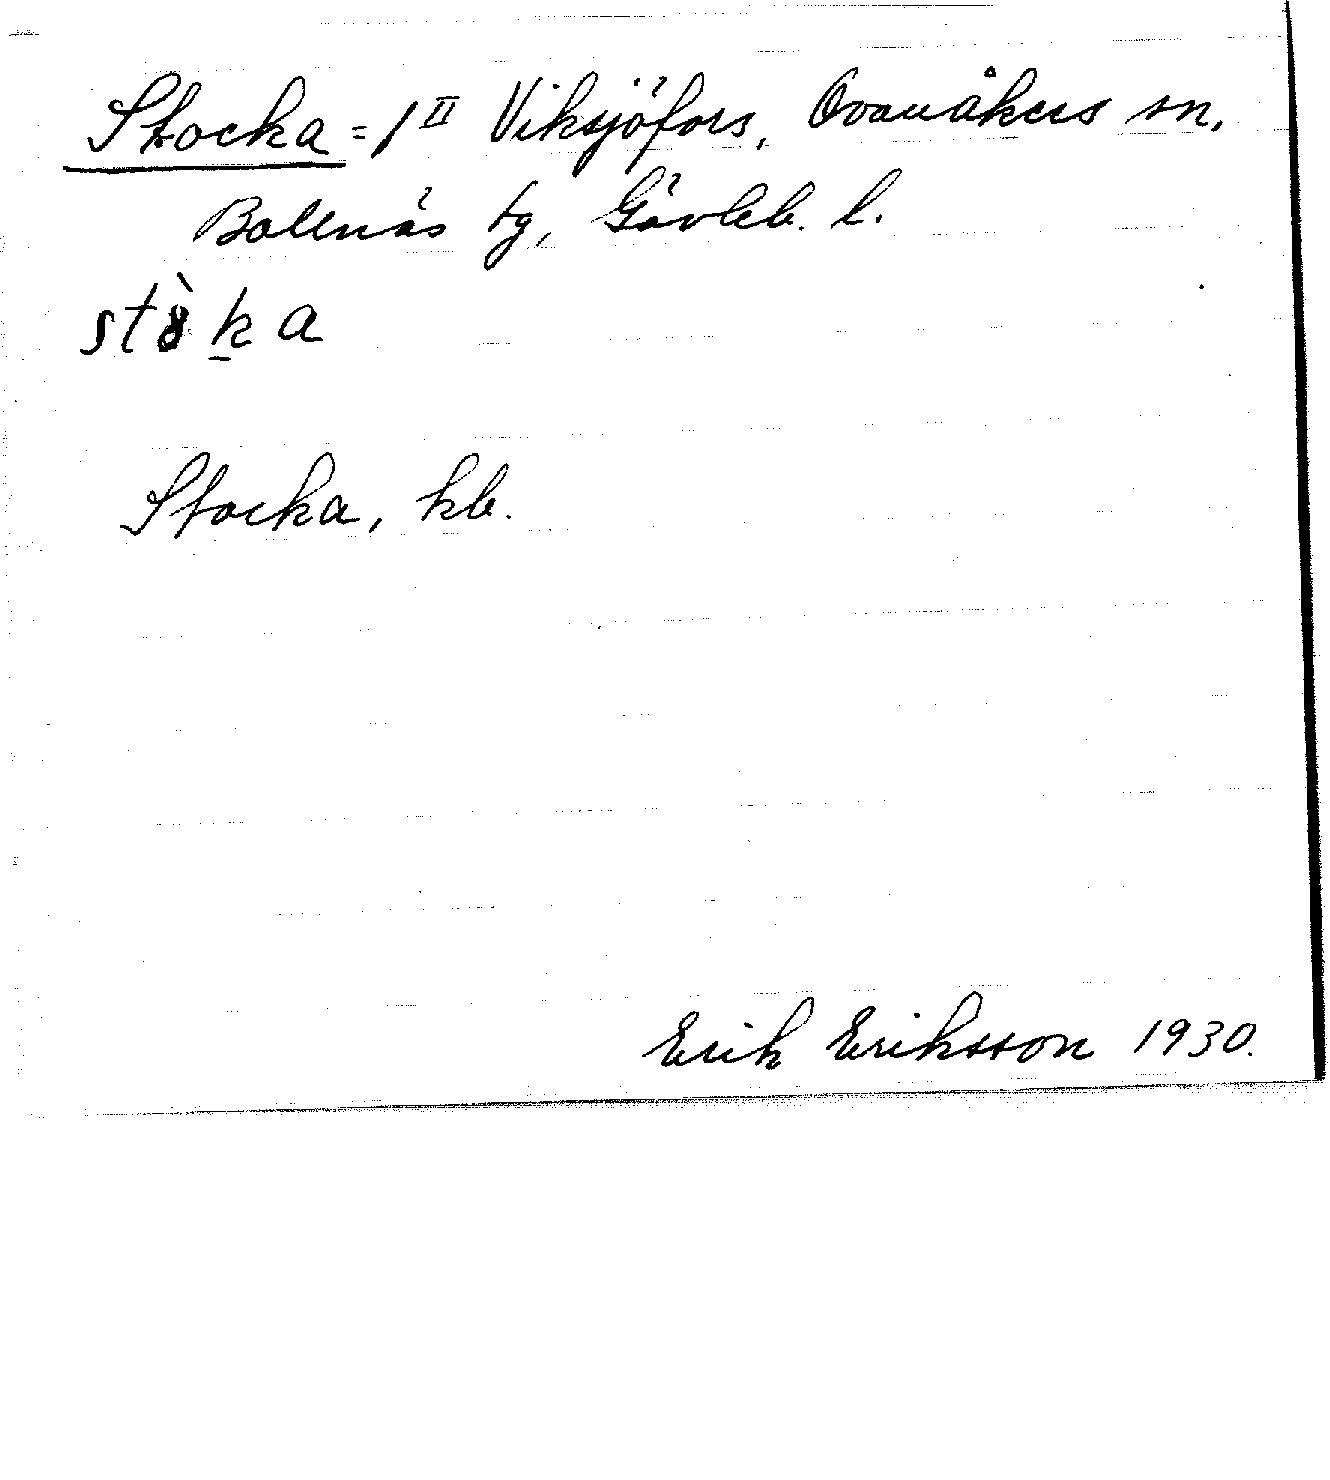 Stocka = 1 II Viksjöfors, Ovanåkers sn,
Bollnäs tg, Gävleb. l.
stòka
Stocka, kb.
Erik Eriksson 1930.